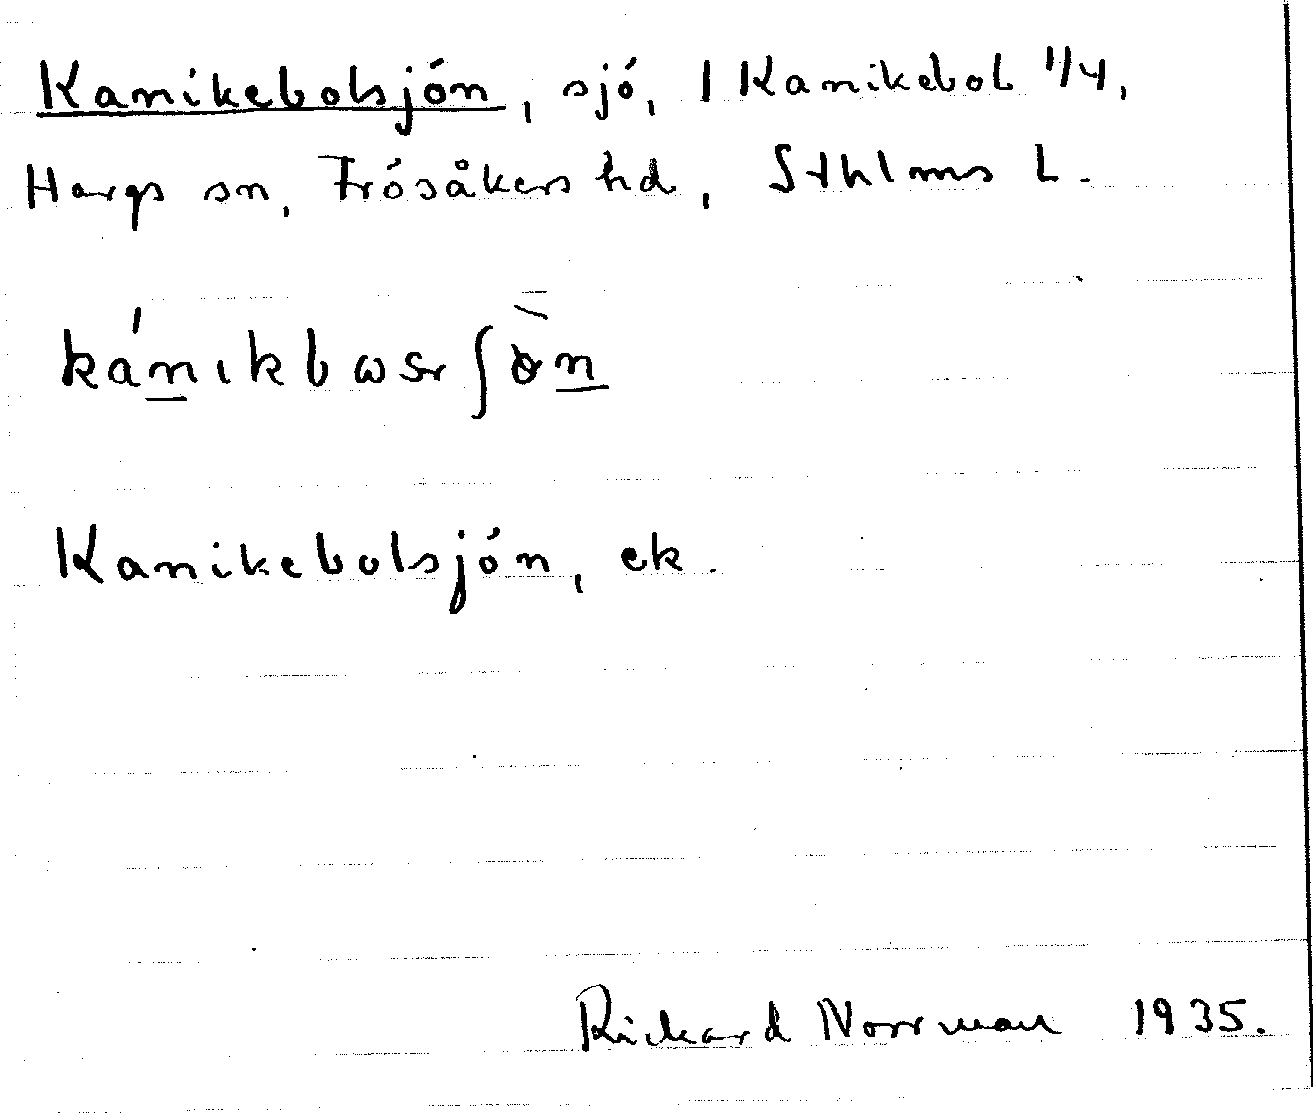 Kanikebolsjön, sjö, 1 Kanikebol 1/4,
Hargs sn, Frösåkers hd, Sthlms L.
Kanikebolsjön, ek.
Rickard Norrman 1935.